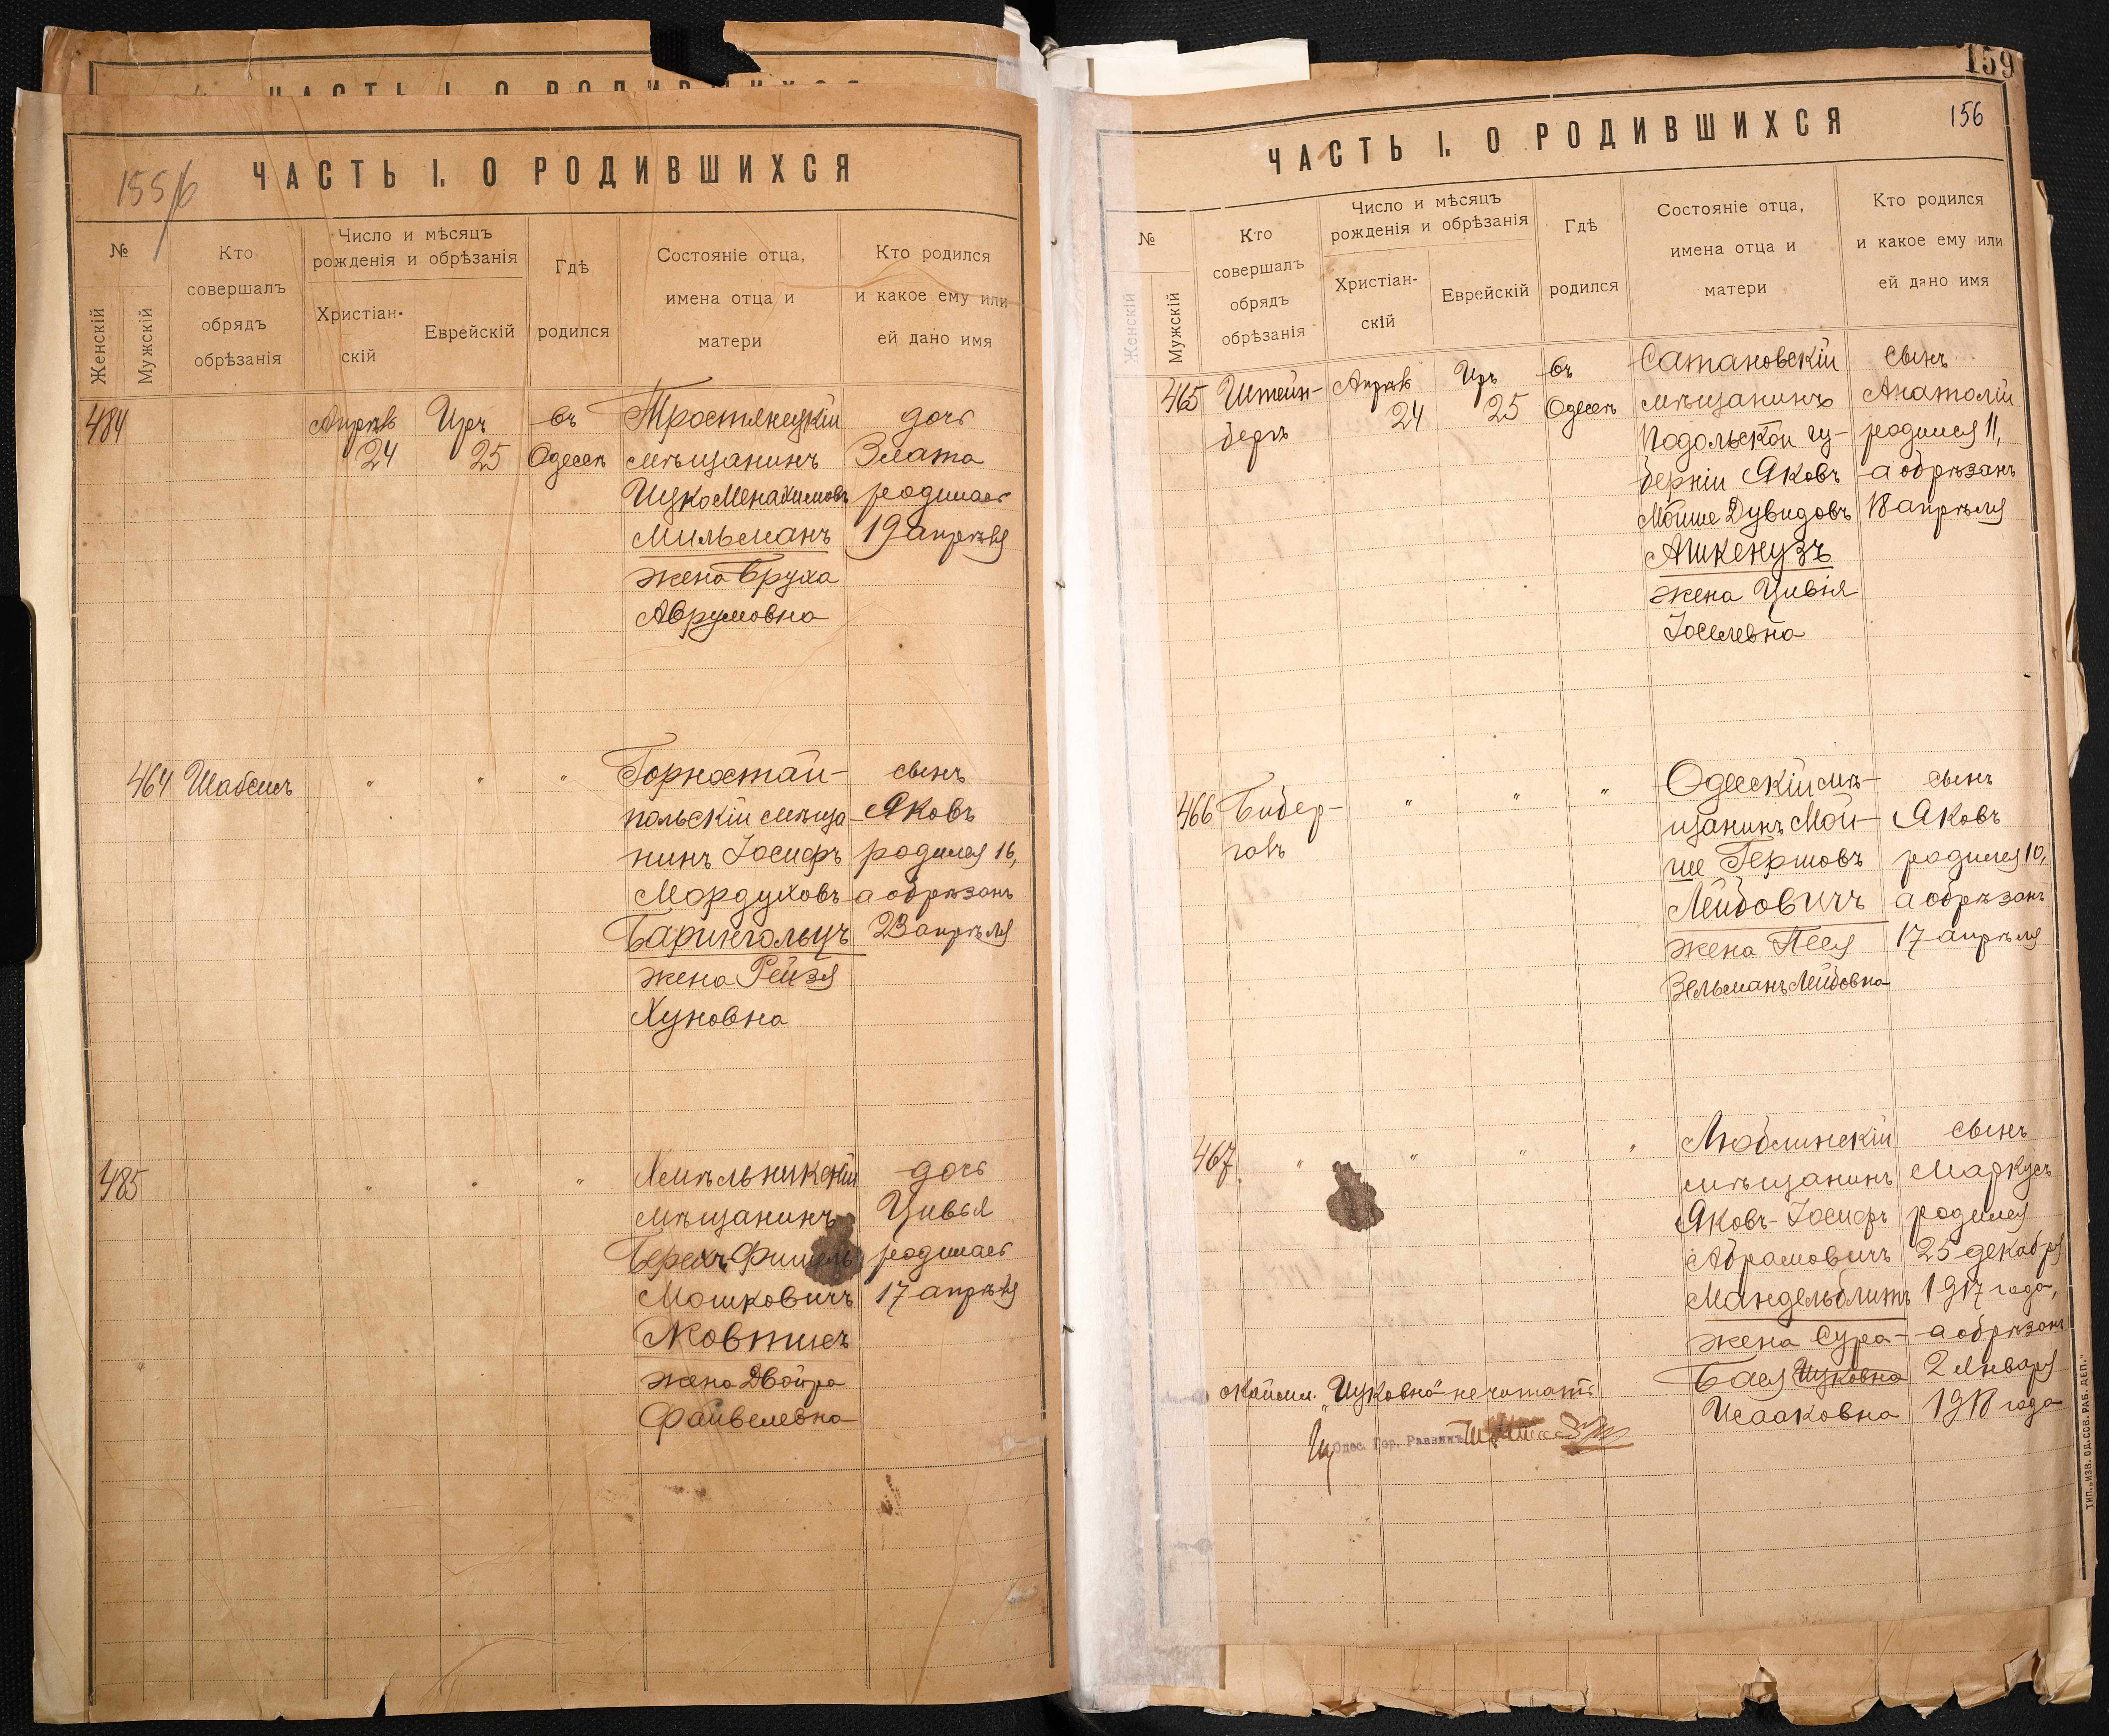 ЧАСТЬ I. О РОДИВШИХСЯ
155/б
ЧАСТЬ I. О РОДИВШИХСЯ
№
Женскій
Мужскій
Кто
совершалъ
обрядъ
обрѣзанія
Число и мѣсяцъ
рожденія и обрѣзанія
Христіан-
скій
Еврейскій
Гдѣ
родился
Состояніе отца,
имена отца и
матери
Кто родился
и какое ему или
ей дано имя
484
Апрѣля
24
Иръ
25
въ
Одессѣ
Тростянецкій
мѣщанинъ
Ицко Менахимовъ
Мильманъ
жена Бруха
Аврумовна
дочь
Злата
родилась
19 апрѣля
464
Шабсисъ
"
"
"
Горностай-
польскій мѣща-
нинъ Іосифъ
Мордуховъ
Барингольцъ
жена Рейзя
Хуновна
сынъ
Яковъ
родился 16,
а обрѣзанъ
23 апрѣля
485
"
"
"
Хмѣльникскій
мѣщанинъ
Берехъ-Фишель
Мошковичъ
Ковтикъ
жена Двойра
Файвелевна
дочь
Цивья
родилась
17 апрѣля
159
156
ЧАСТЬ I. О РОДИВШИХСЯ
№
Женскій
Мужскій
Кто
совершалъ
обрядъ
обрѣзанія
Число и мѣсяцъ
рожденія и обрѣзанія
Христіан-
скій
Еврейскій
Гдѣ
родился
Состояніе отца,
имена отца и
матери
Кто родился
и какое ему или
ей дано имя
465
Штейн-
бергъ
Апрѣля
24
Иръ
25
въ
Одессѣ
Сатановскій
мѣщанинъ
Подольской гу-
берніи Яковъ
Мойше Дувидовъ
Ашкенузъ
жена Цивія
Іоселевна
сынъ
Анатолій
родился 11,
а обрѣзанъ
18 апрѣля
466
Бибер-
галъ
"
"
"
Одесскій мѣ-
щанинъ Мой-
ше Гершовъ
Лейбовичъ
жена Песя
Зельманъ-Лейбовна
сынъ
Яковъ
родился 10,
а обрѣзанъ
17 апрѣля
467
"
"
"
"
Люблинскій
мѣщанинъ
Яковъ-Іосифъ
Абрамовичъ
Мандельблитъ
жена Сура-
Бася Ицковна
Исааковна
сынъ
Маркусъ
родился
25 декабря
1917 года,
а обрѣзанъ
2 Января
1918 года
"Ицковна" не читать
Одес. Гор. Раввинъ
ТИП. „ИЗВ. ОД. СОВ. РАБ. ДЕП."